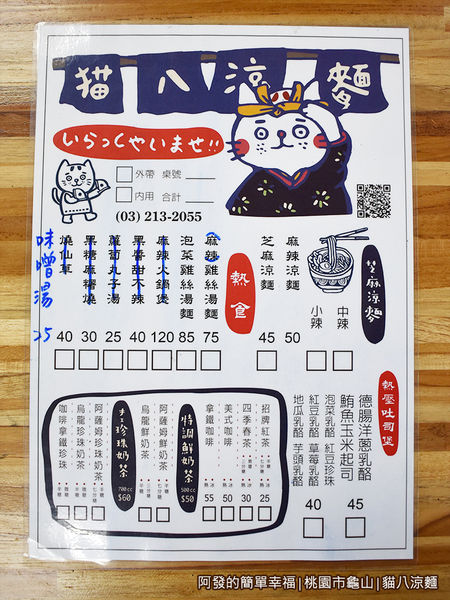 貓八涼麵
いらっしゃいませ!!
外帶 桌號
內用 合計
(03) 213-2055
芝麻涼麵
中辣
小辣
麻辣涼麵
芝麻涼麵
50
45
熱食
麻辣雞絲湯麵
泡菜雞絲湯麵
麻辣火鍋煲
黑香甜不辣
蘿蔔丸子湯
黑糖麻糬燒
燒仙草
75
85
120
40
25
30
40
味噌湯
25
熱壓吐司堡
德腸洋蔥乳酪
鮪魚玉米起司
45
泡菜乳酪 紅豆珍珠
紅豆乳酪 草莓乳酪
地瓜乳酪 芋頭乳酪
40
招牌紅茶
四季春茶
美式咖啡
拿鐵咖啡
25
30
50
55
特調鮮奶茶
500cc
$50
阿薩姆鮮奶茶
烏龍鮮奶茶
手工珍珠奶茶
700cc
$60
阿薩姆珍珠奶茶
烏龍珍珠奶茶
咖啡拿鐵珍珠
阿發的簡單幸福|桃園市龜山|貓八涼麵